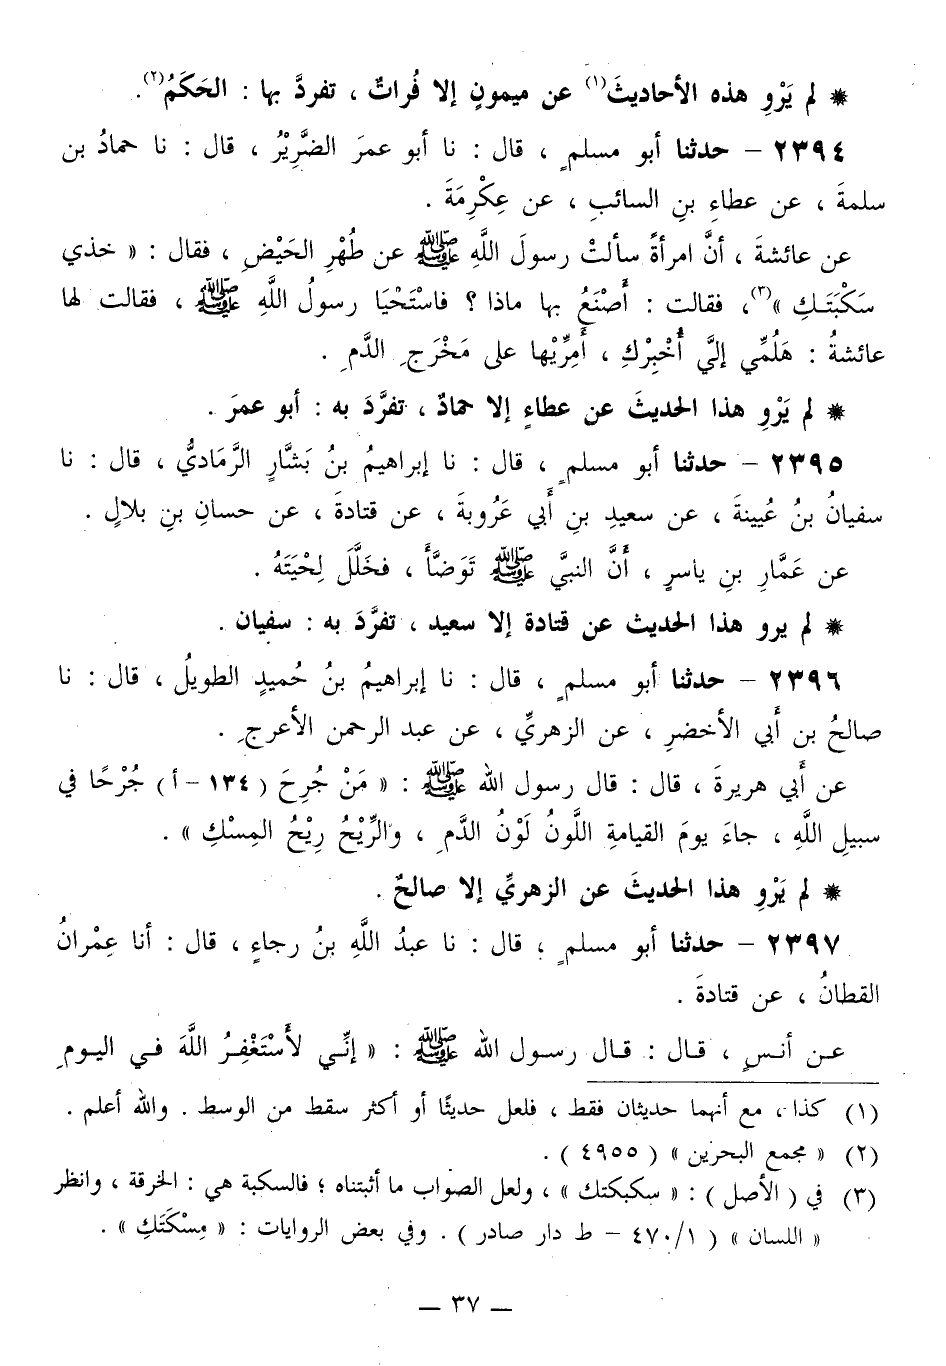 * لم يَرْوِ هذه الأحاديثَ(١) عن ميمونٍ إلا فُراتٌ ، تفردَّ بها : الحَكَمُ(٢).
٢٣٩٤ – حدثنا أبو مسلمٍ ، قال : نا أبو عمرَ الضَّرِيْرُ ، قال : نا حمادُ بن
سلمةَ ، عن عطاءِ بنِ السائبِ ، عن عِكْرِمَةَ .
عن عائشةَ ، أنَّ امرأةً سألتْ رسولَ اللَّهِ ﷺ عن طُهْرِ الحَيْضِ ، فقال : « خذي
سَكْبَتَـكِ »(٣)، فقالت : أَصْنَعُ بها ماذا ؟ فاسْتَحْيَا رسولُ اللَّهِ ﷺ ، فقالت لها
عائشةُ : هَلُمِّي إليَّ أُخْبِرْكِ ، أَمِرِّيْها على مَخْرَجِ الدَّمِ .
* لم يَرْوِ هذا الحديثَ عن عطاءٍ إلا حمادٌ ، تفرَّدَ به : أبو عمرَ .
٢٣٩٥ – حدثنا أبو مسلمٍ ، قال : نا إبراهيمُ بنُ بَشَّارٍ الرَّمَاديُّ ، قال : نا
سفيانُ بنُ عُيينةَ ، عن سعيدِ بنِ أَبي عَرُوبةَ ، عن قتادةَ ، عن حسانِ بنِ بلالٍ .
عن عَمَّارِ بنِ ياسرٍ ، أَنَّ النبيَّ ﷺ تَوَضَّأَ ، فخَلَّلَ لِحْيَتَهُ .
* لم يرو هذا الحديث عن قتادة إلا سعيد ، تفرَّدَ به : سفيان .
٢٣٩٦ – حدثنا أبو مسلمٍ ، قال : نا إبراهيمُ بنُ حُميدٍ الطويلُ ، قال : نا
صالحُ بن أَبي الأخضرِ ، عن الزهريِّ ، عن عبد الرحمن الأعرجِ .
عن أَبي هريرةَ ، قال : قال رسول الله ﷺ : « مَنْ جُرِحَ ( ١٣٤ – أ ) جُرْحًا في
سبيلِ اللَّهِ ، جاءَ يومَ القيامةِ اللَّونُ لَوْنُ الدَّمِ ، والرِّيْحُ رِيْحُ المِسْكِ » .
* لم يَرْوِ هذا الحديثَ عن الزهريِّ إلا صالحٌ .
٢٣٩٧ – حدثنا أبو مسلمٍ ، قال : نا عبدُ اللَّهِ بنُ رجاءٍ ، قال : أنا عِمْرانُ
القطانُ ، عن قتادةَ .
عـن أنـسٍ ، قـال : قـال رسـول الله ﷺ : « إنِّـي لأَسْتَغْفِـرُ اللَّهَ فـي اليـومِ
(١) كذا ، مع أنهما حديثان فقط ، فلعل حديثًا أو أكثر سقط من الوسط . والله أعلم .
(٢) « مجمع البحرين » ( ٤٩٥٥ ) .
(٣) في ( الأصل ) : « سكبكتك » ، ولعل الصواب ما أثبتناه ؛ فالسكبة هي : الخرقة ، وانظر
« اللسان » ( ٤٧٠/١ – ط دار صادر ) . وفي بعض الروايات : « مِسْكَتَكِ » .
– ٣٧ –